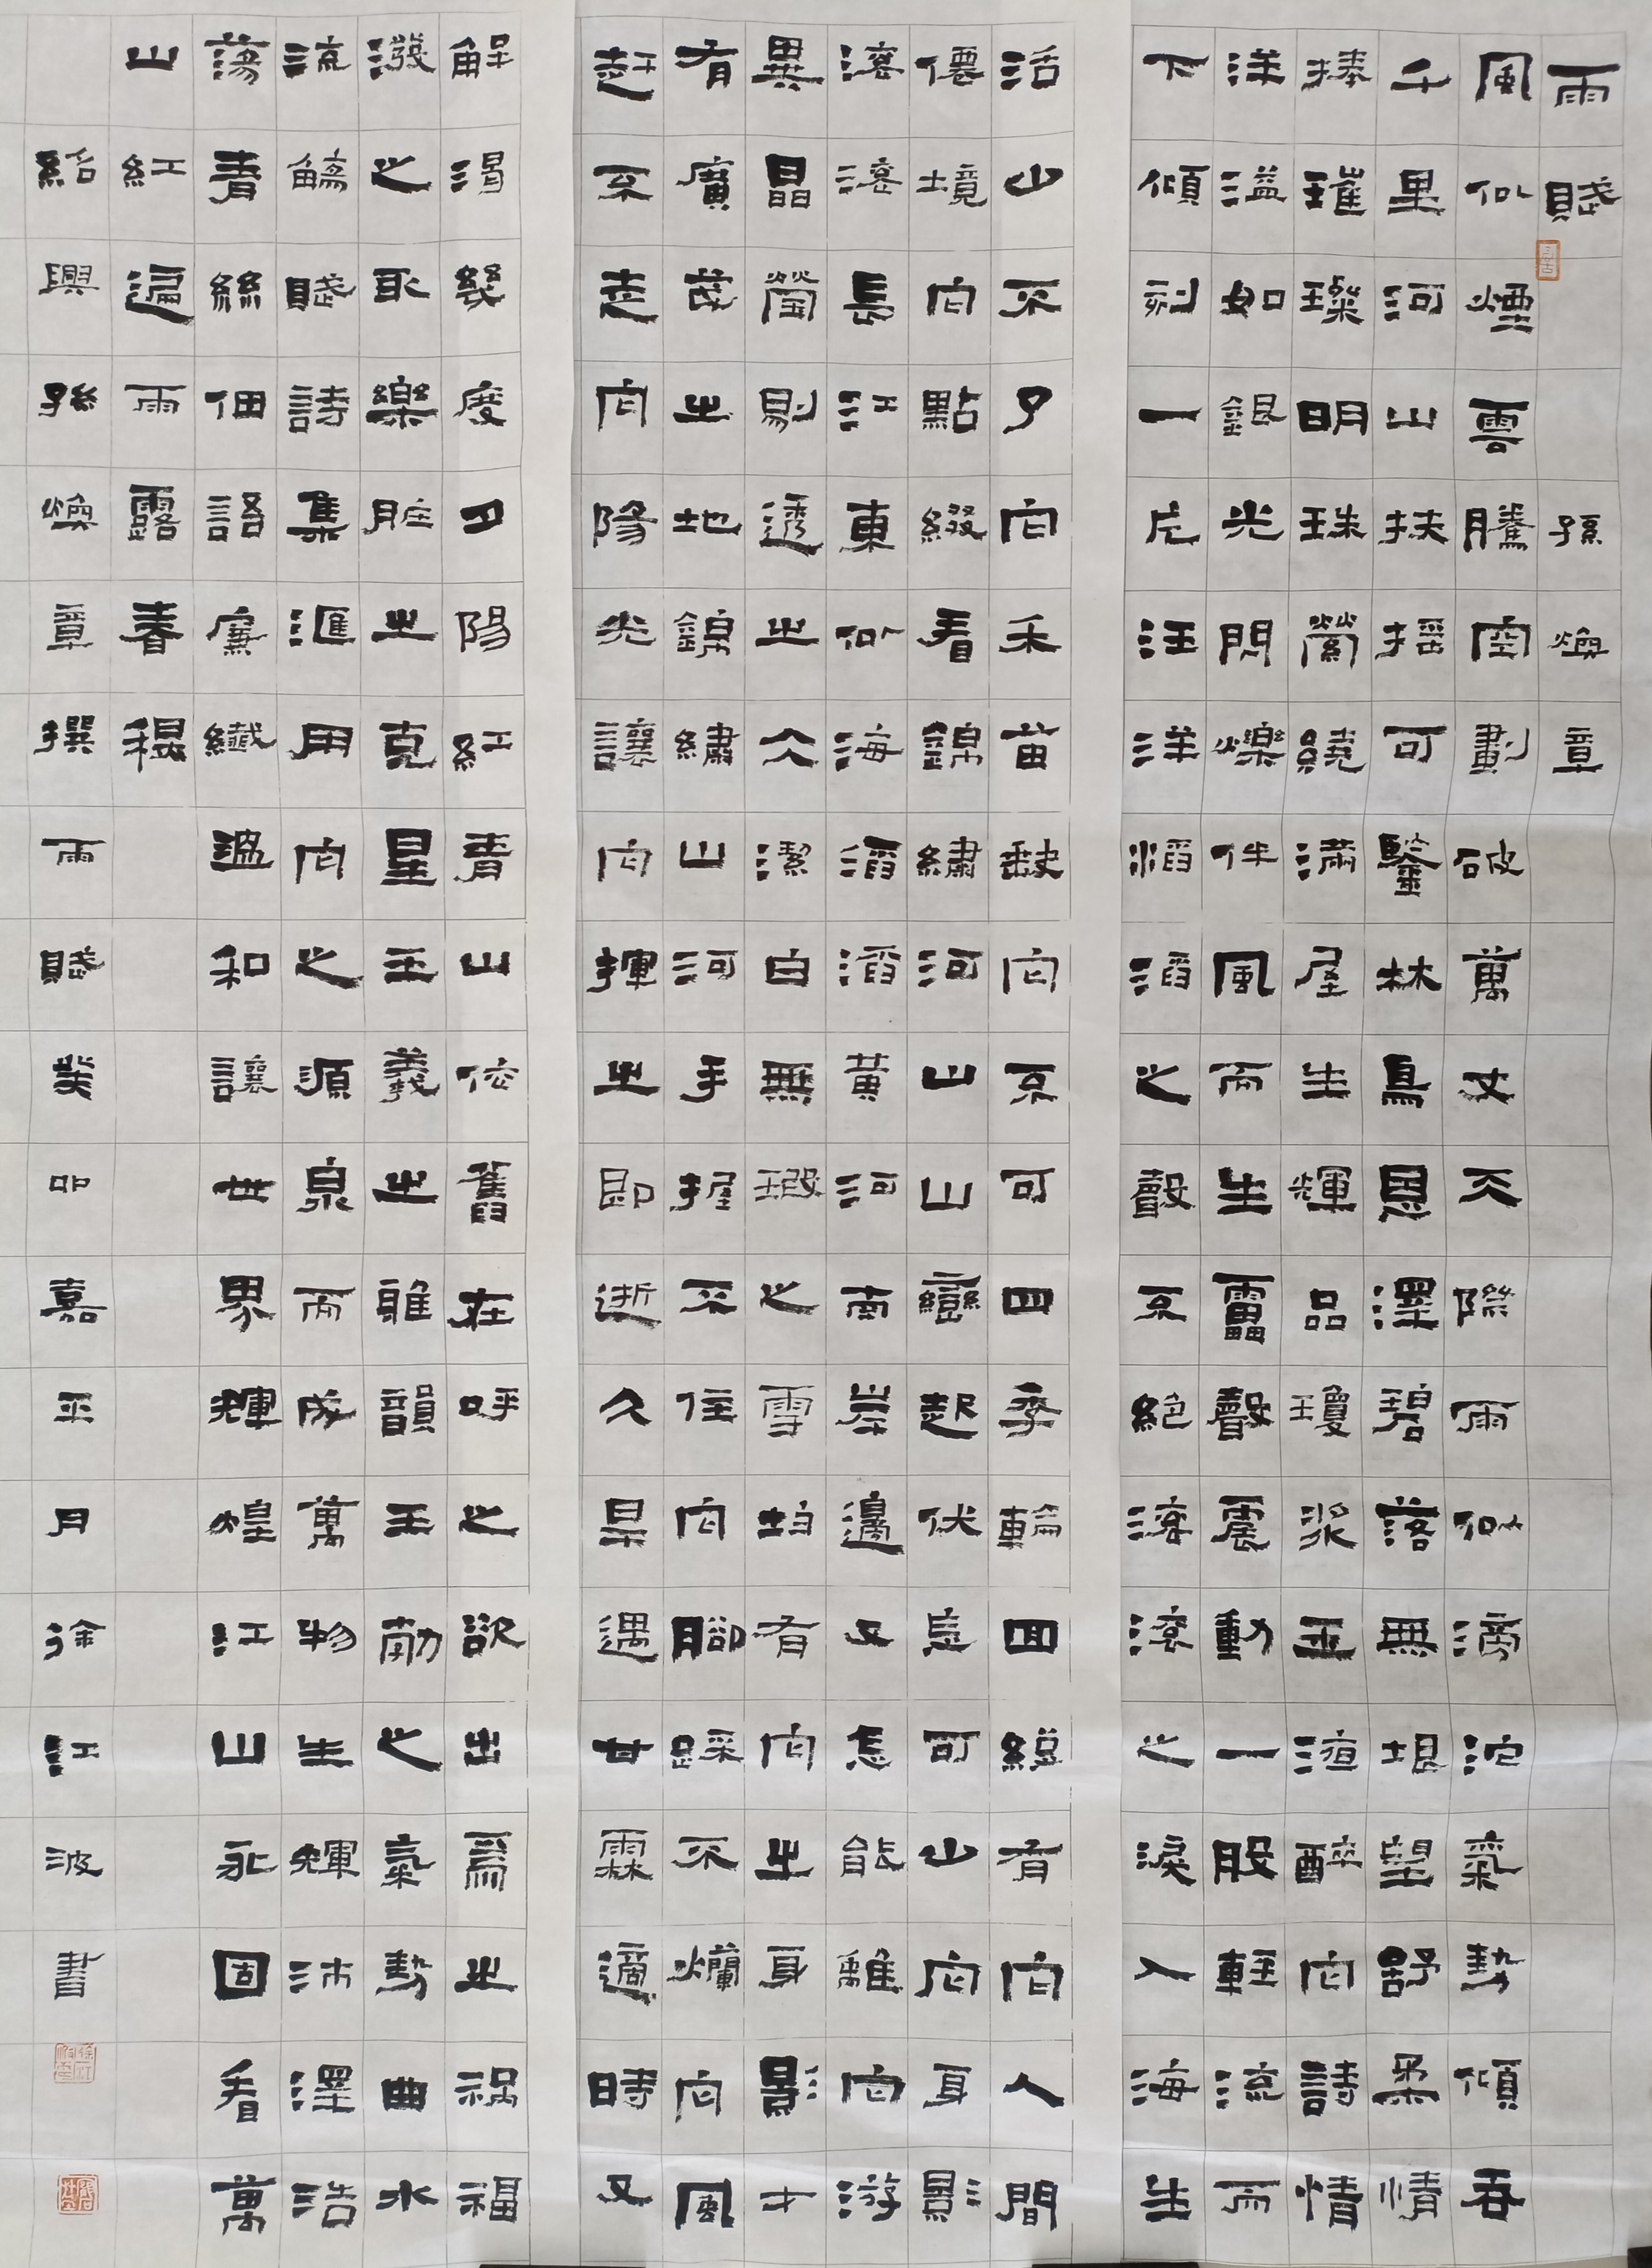 雨賦 孫煥章
風似煙雲騰空劃破萬丈天際雨似滂沱氣勢傾吞
千里河山扶搖可鑒林鳥恩澤碧落無垠望舒柔情
捧璀璨明珠縈繞滿屋生輝品瓊漿玉渲醉向詩情
洋溢如銀光閃爍伴風而生雷聲震動一股輕流而
下傾刻一片汪洋滔滔之聲不絕滾滾之淚入海生
活山不了向禾苗缺向不可四季輪回縱有向人間
僊境向點綴看錦繡河山山巒起伏焉可山向耳影
滾滾長江東似海滔滔黃河南岸邊又怎能離向游
異晶瑩剔透之大潔白無瑕之雪均有向之身影才
有廣茂之地錦繡山河手握不住向腳踩不爛向風
趕不走向陽光讓向揮之即逝久旱遇甘霖適時又
解渴幾度夕陽紅青山依舊在呼之欲出爲之禍福
潑之取樂之克星主義之雖韻主之氣勢曲水
流觴賦詩集匯用向之源泉而成萬物生輝沛澤浩
蕩青絲佃語廉纖溫和讓世界輝煌江山永固看萬
山紅遍雨露春穩
紹興孫煥章撰雨賦癸卯嘉平月徐江波書